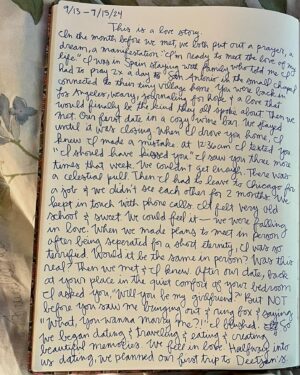 9/13 - 7/13/24
This is a love story.
In the month before we met, we both put out a prayer, a
dream, a manifestation "I'm ready to meet the love of my
life." I was in Spain staying with family who told me I
had to pray 2x a day to San Antonio in the small chapel
connected to their tiny village home. You were back in
Los Angeles, weary, journaling for hope & a love that
would finally be the kind they all spoke about. Then we
met. Our first date in a cozy wine bar. We stayed
until it was closing. When I drove you home, I
knew I made a mistake. At 12:36am I texted you
"I should have kissed you." I saw you three more
times that week. We couldn't get enough. There was
a celestial pull. Then I had to leave to Chicago for
a job & we didn't see each other for 2 months. We
kept in touch with phone calls. It felt very old
school & sweet. We could feel it — we were falling
in love. When we made plans to meet in person
after being seperated for a short eternity, I was so
terrified. Would it be the same in person? Was this
real? Then we met & I knew. After our date, back
at your place in the quiet comfort of your bedroom
I asked you, "Will you be my girlfriend?" But NOT
before you saw me bringing out a ring box & saying
"What, you wanna marry me?!" I blushed. So
we began dating & travelling & eating & creating
beautiful memories. We fell in love. Halfway into
us dating, we planned our first trip to Deetjen's